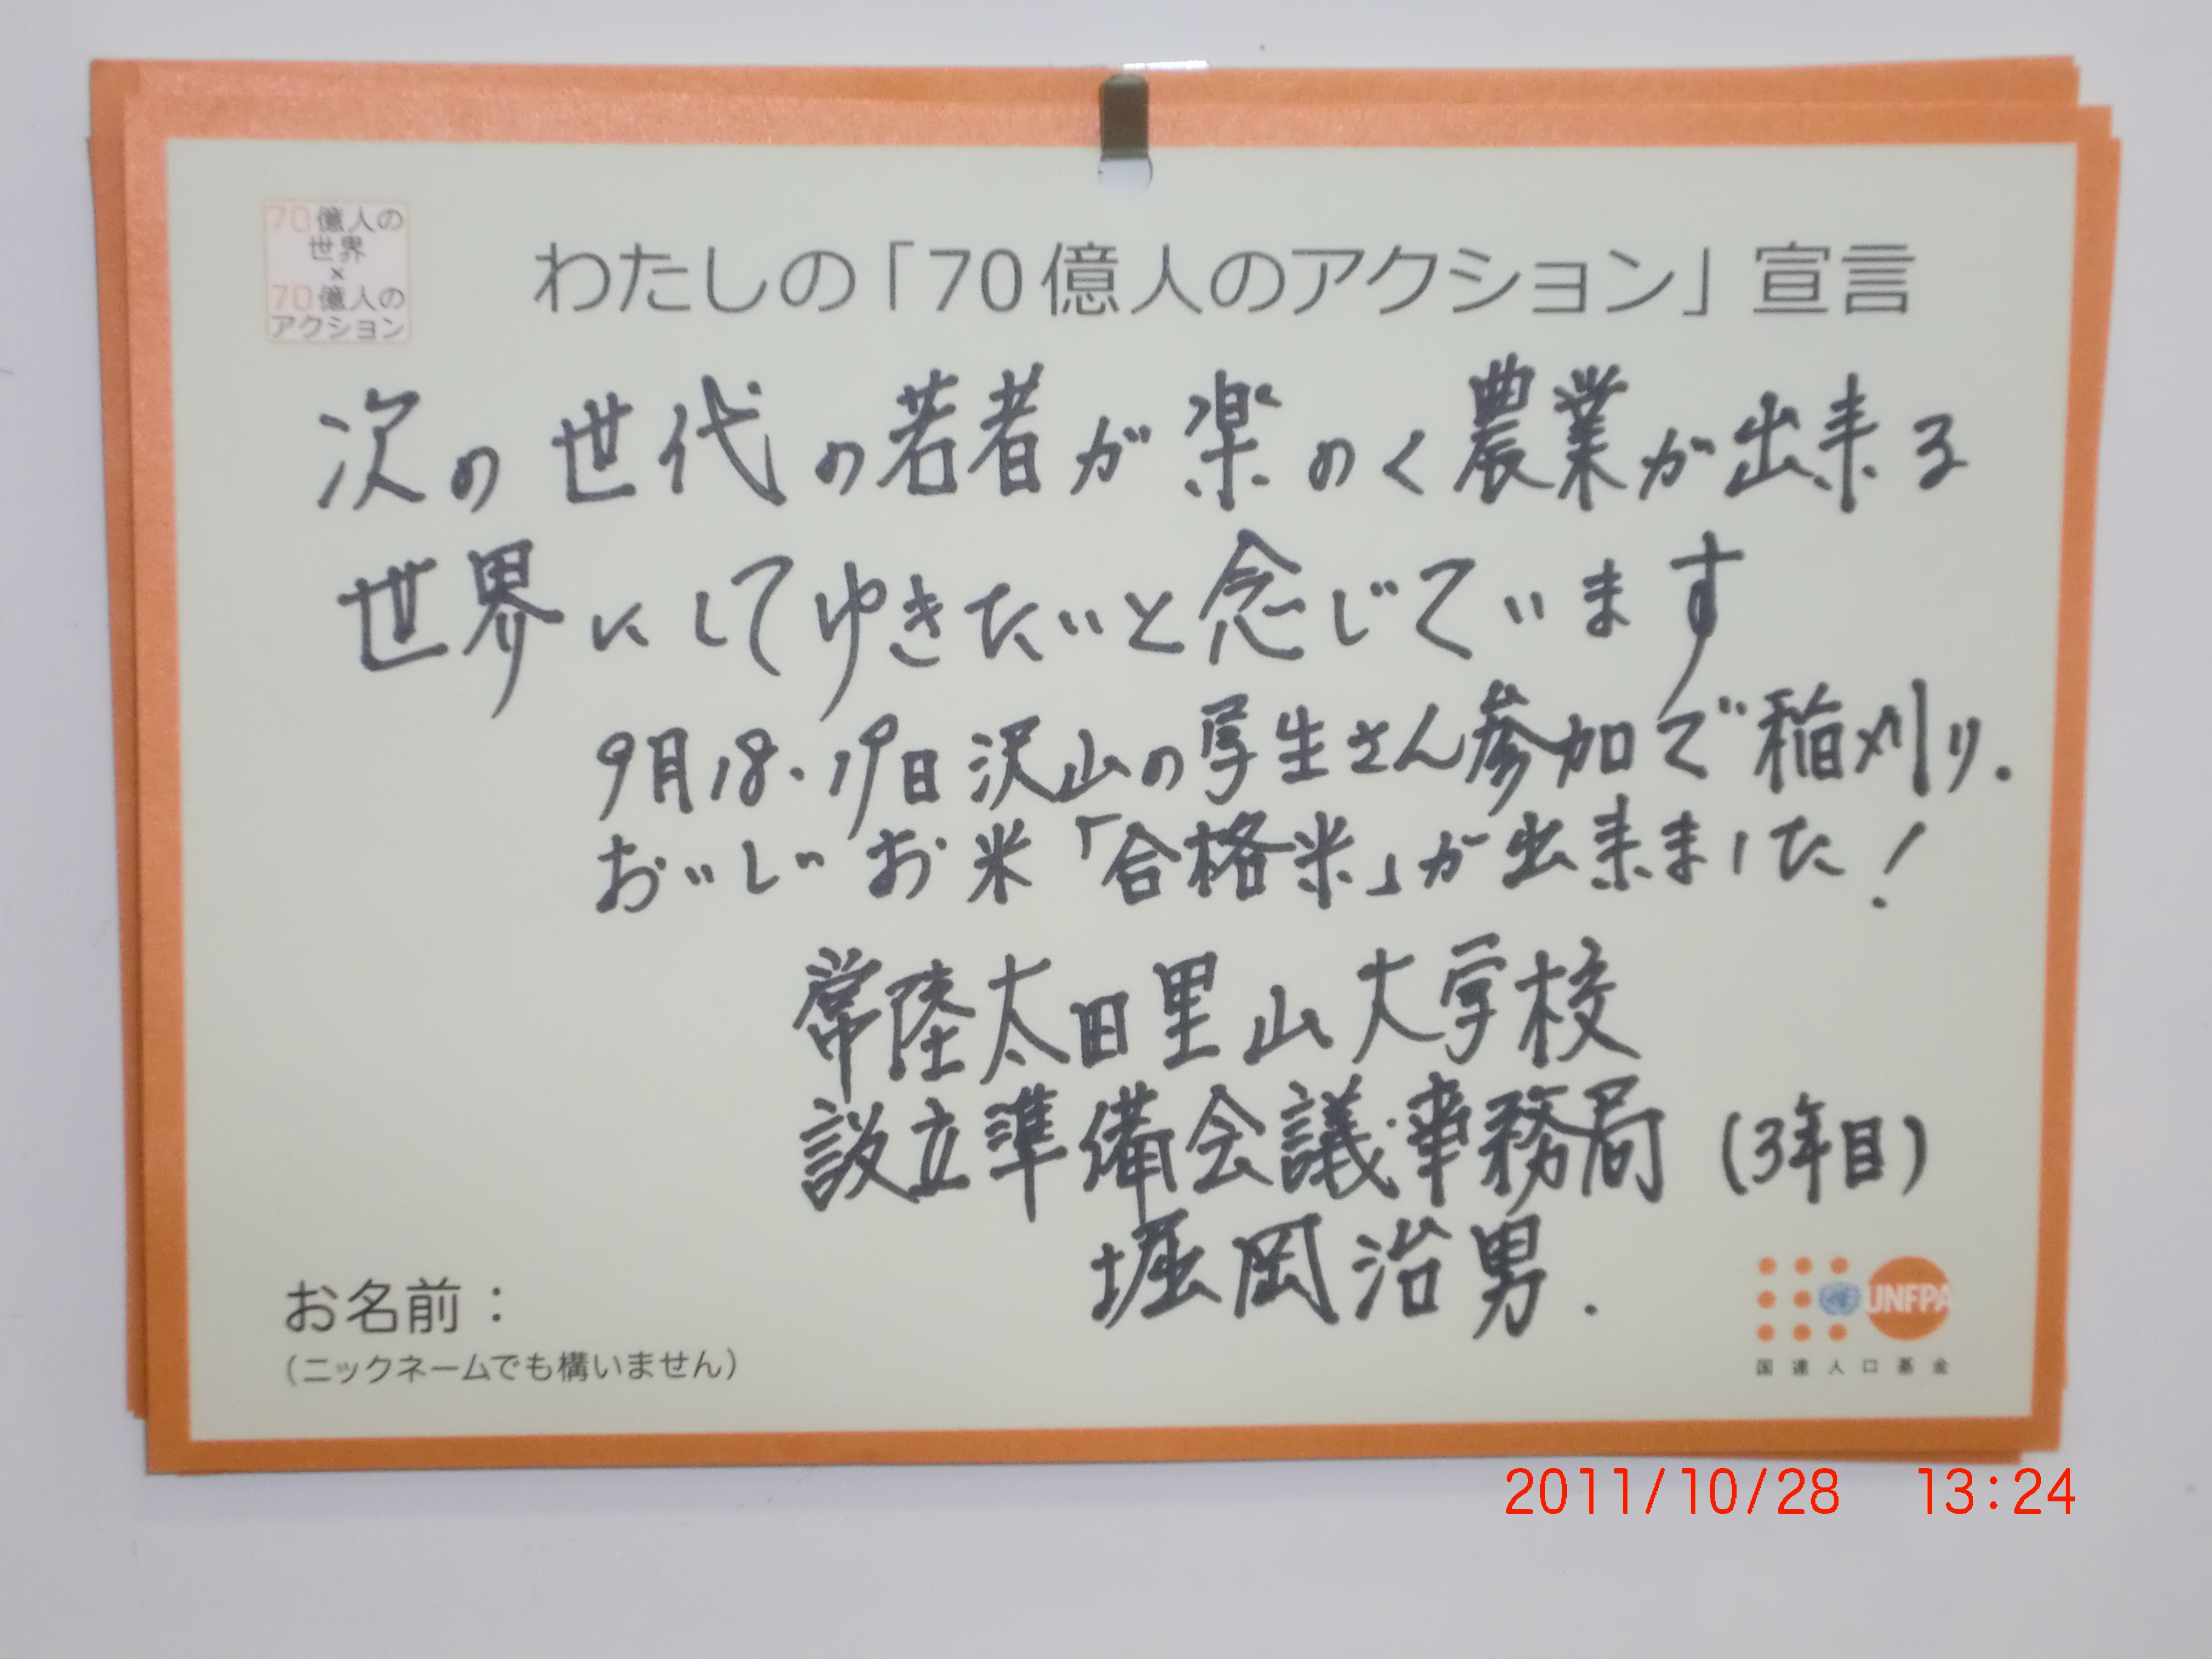 70億人の
世界
×
70億人の
アクション
わたしの「70億人のアクション」宣言
次の世代の若者が楽のく農業が出来る
世界にしてゆきたいと念じています
9月18・19日沢山の学生さん参加で稲刈り.
おいしいお米「合格米」が出来ました!
常陸太田里山大学校
設立準備会議・事務局(3年目)
堀岡治男.
お名前:
(ニックネームでも構いません)
UNFPA
国連人口基金
2011/10/28 13:24